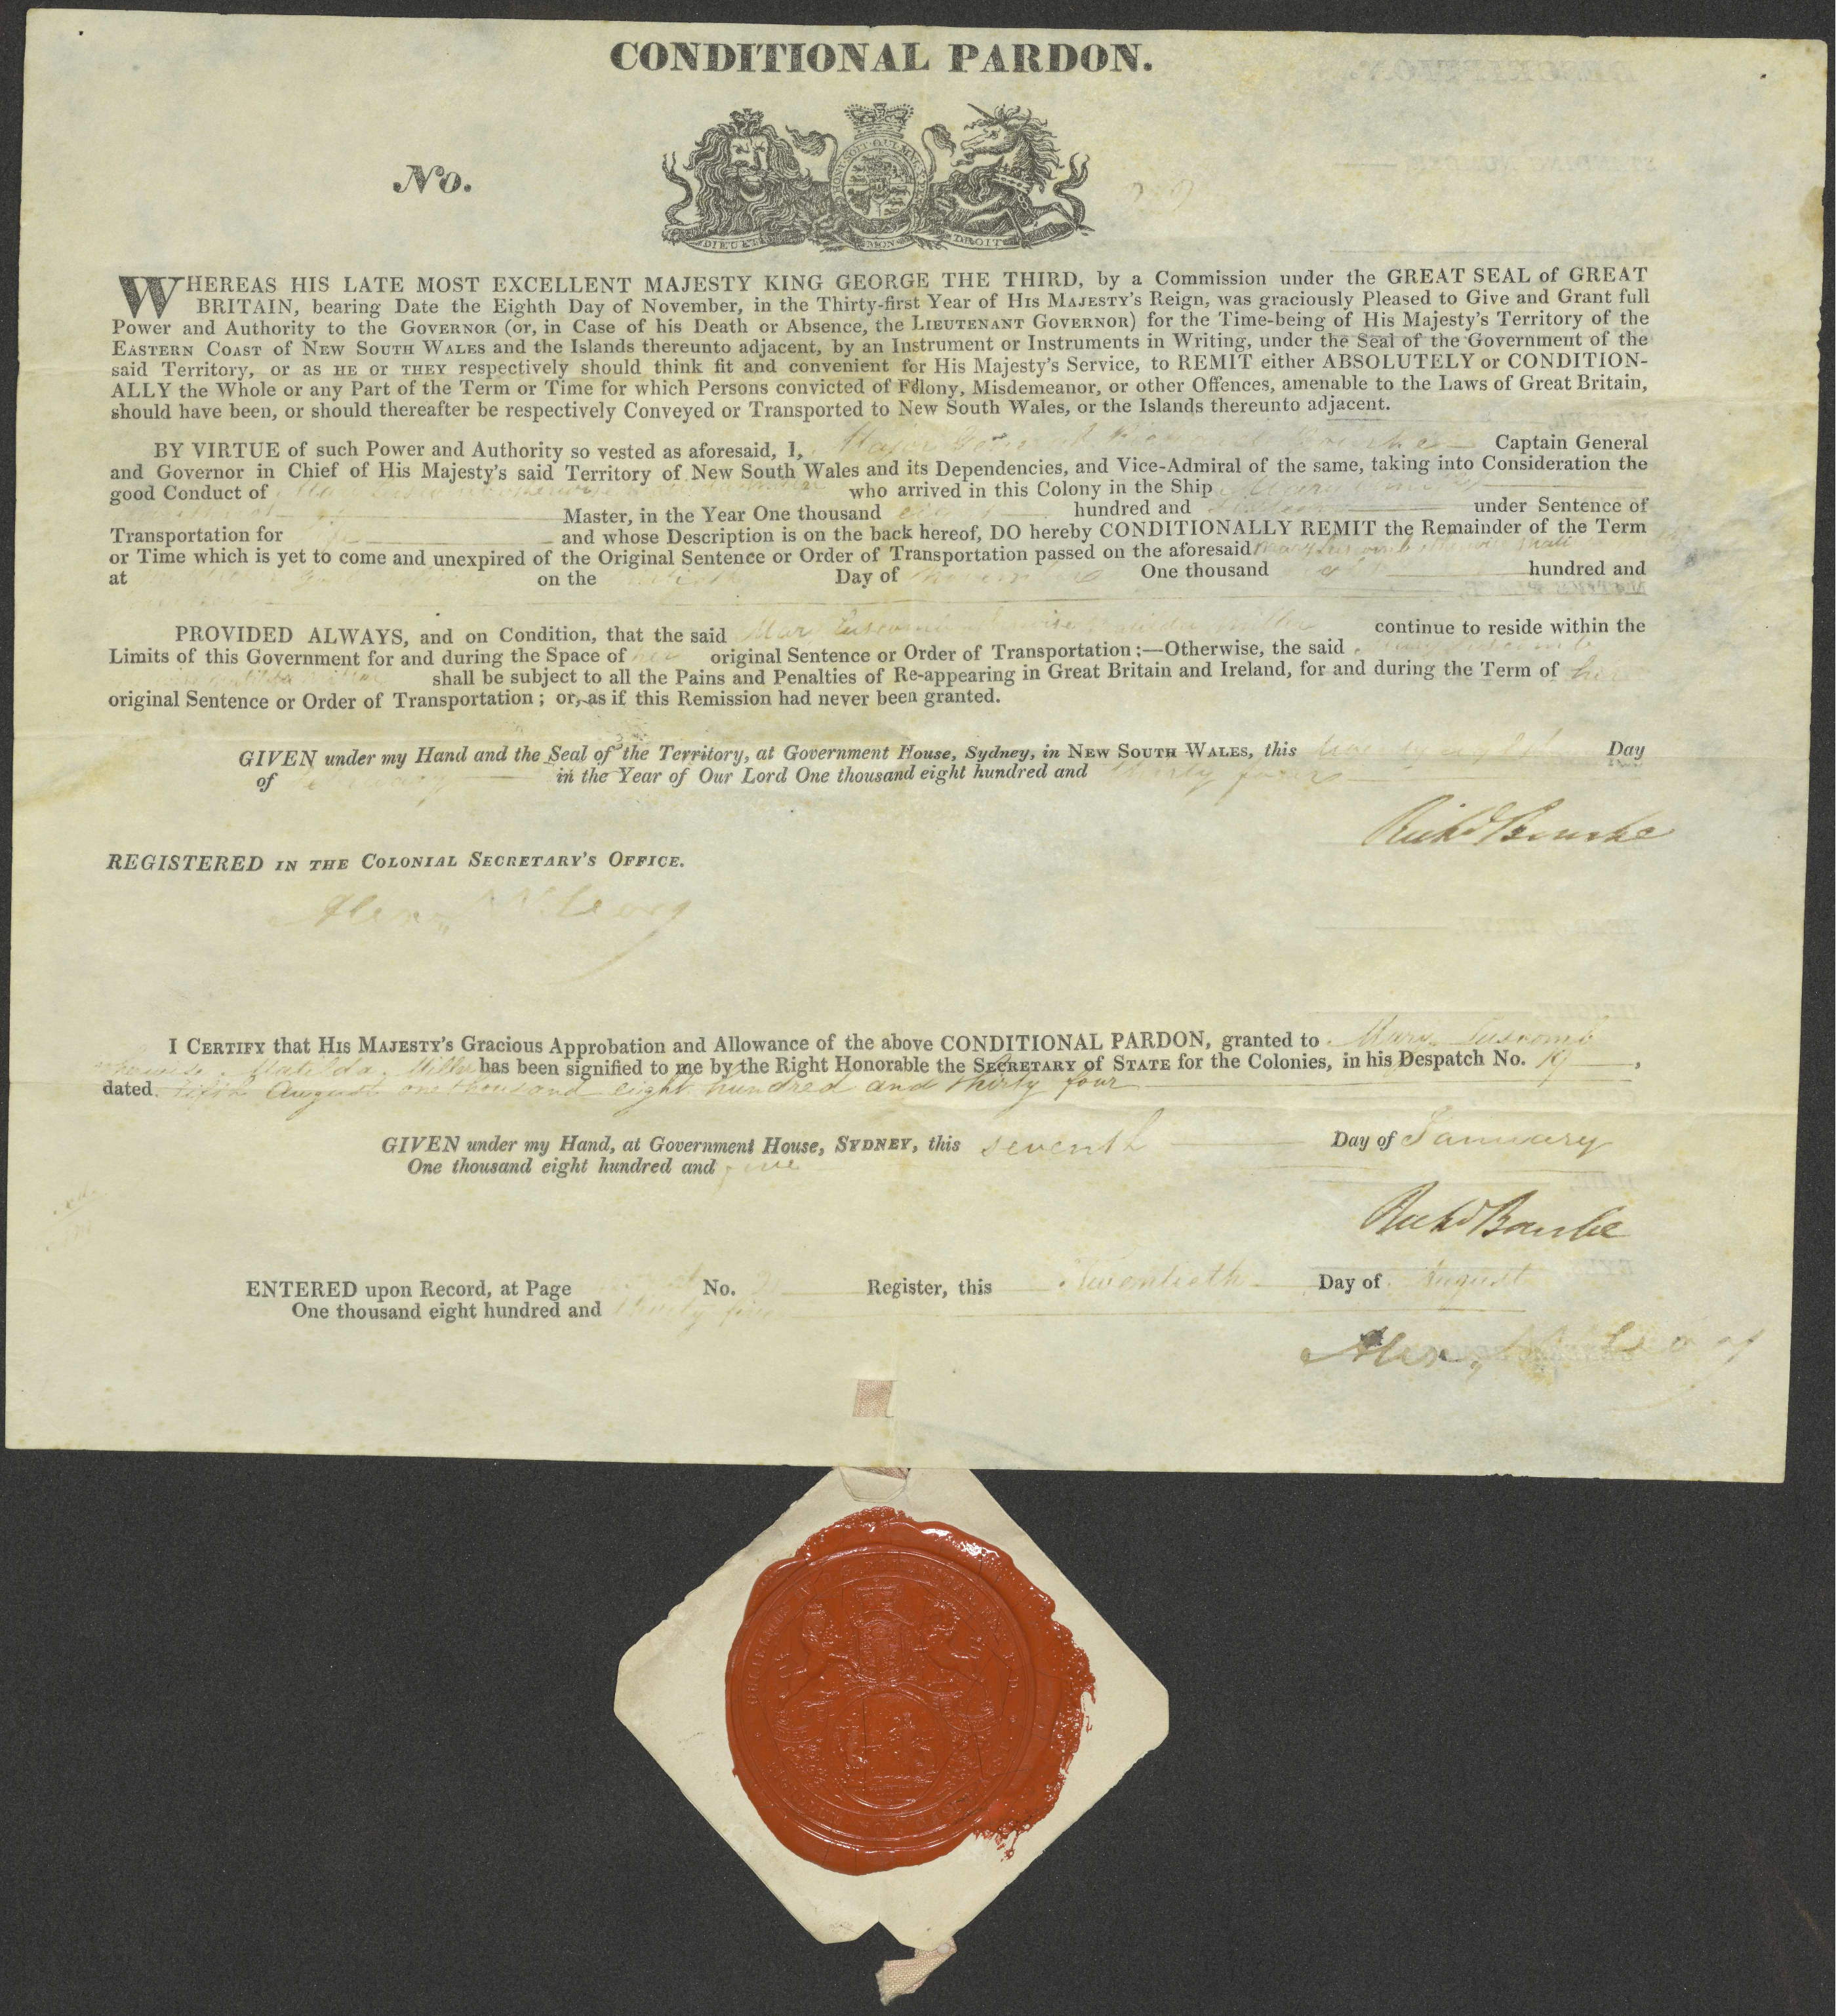 CONDITIONAL PARDON.
No.
HONI SOIT QUI MAL Y PENSE
DIEU ET MON DROIT
WHEREAS HIS LATE MOST EXCELLENT MAJESTY KING GEORGE THE THIRD, by a Commission under the GREAT SEAL of GREAT
BRITAIN, bearing Date the Eighth Day of November, in the Thirty-first Year of HIS MAJESTY'S Reign, was graciously Pleased to Give and Grant full
Power and Authority to the GOVERNOR (or, in Case of his Death or Absence, the LIEUTENANT GOVERNOR) for the Time-being of His Majesty's Territory of the
EASTERN COAST of NEW SOUTH WALES and the Islands thereunto adjacent, by an Instrument or Instruments in Writing, under the Seal of the Government of the
said Territory, or as HE or THEY respectively should think fit and convenient for His Majesty's Service, to REMIT either ABSOLUTELY or CONDITION-
ALLY the Whole or any Part of the Term or Time for which Persons convicted of Felony, Misdemeanor, or other Offences, amenable to the Laws of Great Britain,
should have been, or should thereafter be respectively Conveyed or Transported to New South Wales, or the Islands thereunto adjacent.
BY VIRTUE of such Power and Authority so vested as aforesaid, I, Major General Richard Bourke Captain General
and Governor in Chief of His Majesty's said Territory of New South Wales and its Dependencies, and Vice-Admiral of the same, taking into Consideration the
good Conduct of Mary Luscomb otherwise Matilda Miller who arrived in this Colony in the Ship
Master, in the Year One thousand eight hundred and under Sentence of
Transportation for life and whose Description is on the back hereof, DO hereby CONDITIONALLY REMIT the Remainder of the Term
or Time which is yet to come and unexpired of the Original Sentence or Order of Transportation passed on the aforesaid Mary Luscomb otherwise Mati
at on the Day of One thousand hundred and
PROVIDED ALWAYS, and on Condition, that the said Mary Luscomb otherwise Matilda Miller continue to reside within the
Limits of this Government for and during the Space of her original Sentence or Order of Transportation :—Otherwise, the said Mary Luscomb
otherwise Matilda Miller shall be subject to all the Pains and Penalties of Re-appearing in Great Britain and Ireland, for and during the Term of her
original Sentence or Order of Transportation ; or, as if this Remission had never been granted.
GIVEN under my Hand and the Seal of the Territory, at Government House, Sydney, in NEW SOUTH WALES, this twenty eighth Day
of in the Year of Our Lord One thousand eight hundred and thirty four
Richd Bourke
REGISTERED IN THE COLONIAL SECRETARY'S OFFICE.
Alexr McLeay
I CERTIFY that HIS MAJESTY'S Gracious Approbation and Allowance of the above CONDITIONAL PARDON, granted to Mary Luscomb
otherwise Matilda Miller has been signified to me by the Right Honorable the SECRETARY of STATE for the Colonies, in his Despatch No. 19,
dated fifth August one thousand eight hundred and thirty four
GIVEN under my Hand, at Government House, SYDNEY, this seventh Day of January
One thousand eight hundred and five
Richd Bourke
ENTERED upon Record, at Page No. Register, this Twentieth Day of August
One thousand eight hundred and thirty five
Alexr McLeay